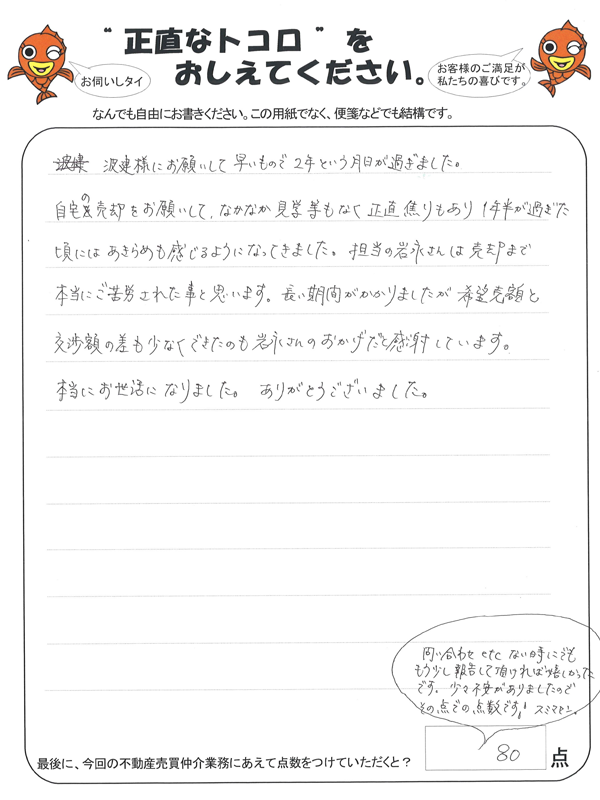 “正直なトコロ”を
おしえてください。
お伺いしタイ
お客様のご満足が
私たちの喜びです。
なんでも自由にお書きください。この用紙でなく、便箋などでも結構です。
波建様にお願いして早いもので2年という月日が過ぎました。
自宅の売却をお願いして、なかなか見学等もなく正直焦りもあり1年半が過ぎた
頃にはあきらめも感じるようになってきました。担当の岩永さんは売却まで
本当にご苦労された事と思います。長い期間がかかりましたが希望売額と
交渉額の差も少なくできたのも岩永さんのおかげだと感謝しています。
本当にお世話になりました。ありがとうございました。
問い合わせetcない時にでも
もう少し報告して頂ければ嬉しかった
です。少々不安がありましたので
その点での点数です! スミマセン。
最後に、今回の不動産売買仲介業務にあえて点数をつけていただくと?
80 点